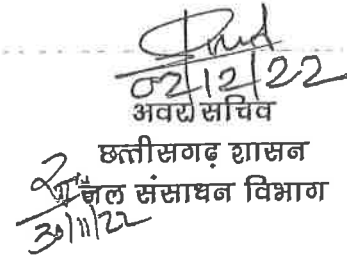 02/12/22
अवर सचिव
छत्तीसगढ़ शासन
जल संसाधन विभाग
30/11/22